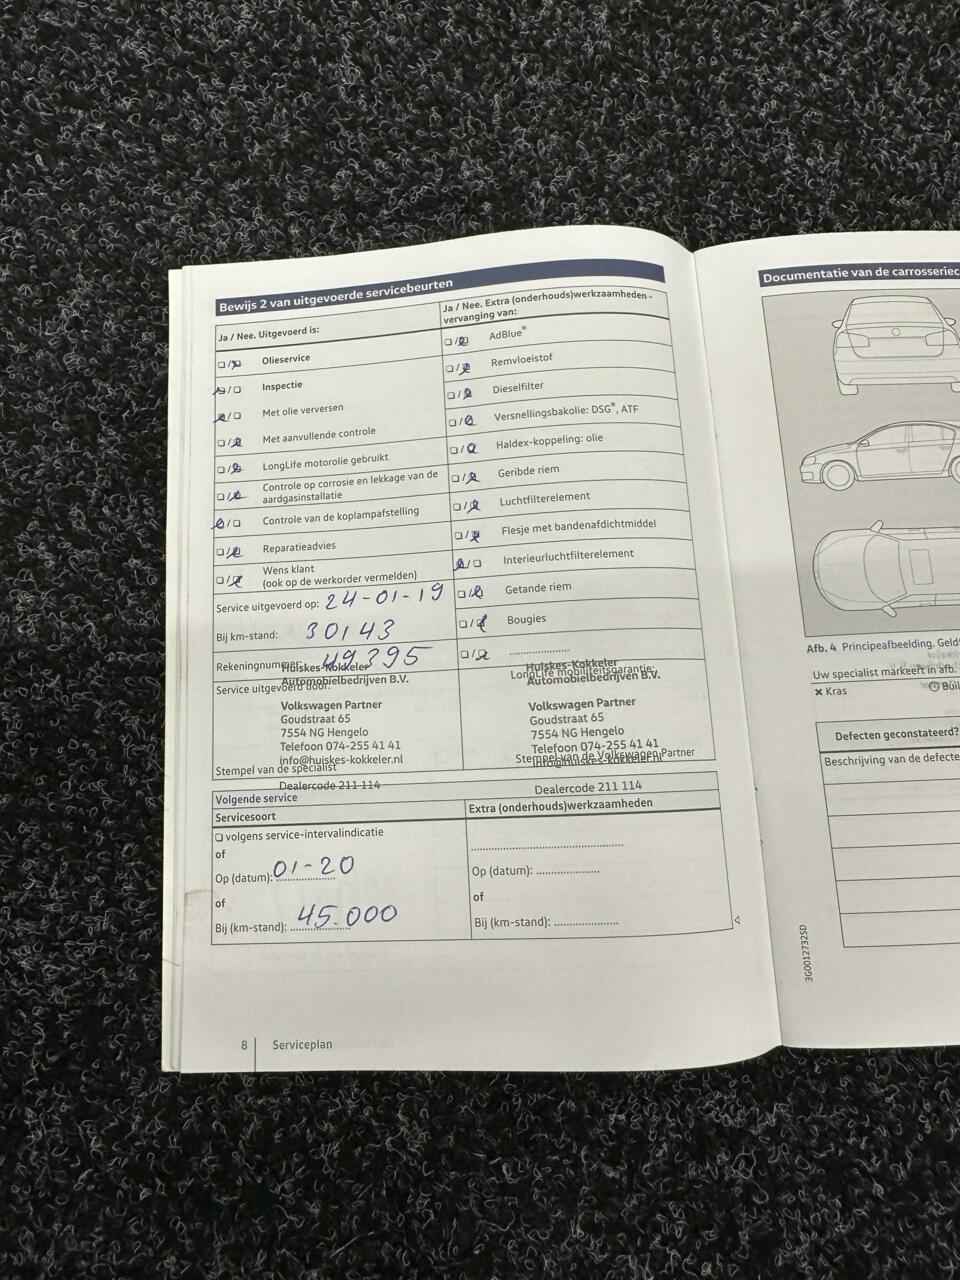 Bewijs 2 van uitgevoerde servicebeurten
Ja / Nee. Uitgevoerd is:
Olieservice
Inspectie
Met olie verversen
Met aanvullende controle
LongLife motorolie gebruikt
Controle op corrosie en lekkage van de
aardgasinstallatie
Controle van de koplampafstelling
Reparatieadvies
Wens klant
(ook op de werkorder vermelden)
Service uitgevoerd op: 24-01-19
Bij km-stand: 30143
Rekeningnummer: 49395
Service uitgevoerd door:
Huiskes-Kokkeler
Automobielbedrijven B.V.
Volkswagen Partner
Goudstraat 65
7554 NG Hengelo
Telefoon 074-255 41 41
info@huiskes-kokkeler.nl
Stempel van de specialist
Dealercode 211 114
Ja / Nee. Extra (onderhouds)werkzaamheden -
vervanging van:
AdBlue®
Remvloeistof
Dieselfilter
Versnellingsbakolie: DSG®, ATF
Haldex-koppeling: olie
Geribde riem
Luchtfilterelement
Flesje met bandenafdichtmiddel
Interieurluchtfilterelement
Getande riem
Bougies
LongLife mobiliteitsgarantie:
Huiskes-Kokkeler
Automobielbedrijven B.V.
Volkswagen Partner
Goudstraat 65
7554 NG Hengelo
Telefoon 074-255 41 41
Stempel van de Volkswagen Partner
info@huiskes-kokkeler.nl
Dealercode 211 114
Volgende service
Servicesoort
volgens service-intervalindicatie
of
Op (datum): 01-20
of
Bij (km-stand): 45.000
Extra (onderhouds)werkzaamheden
Op (datum):
of
Bij (km-stand):
8 Serviceplan
Documentatie van de
Afb. 4 Principeafbeelding.
Uw specialist markeert in afb.
Kras
Defecten geconstateerd?
Beschrijving van de
3G0012732SD